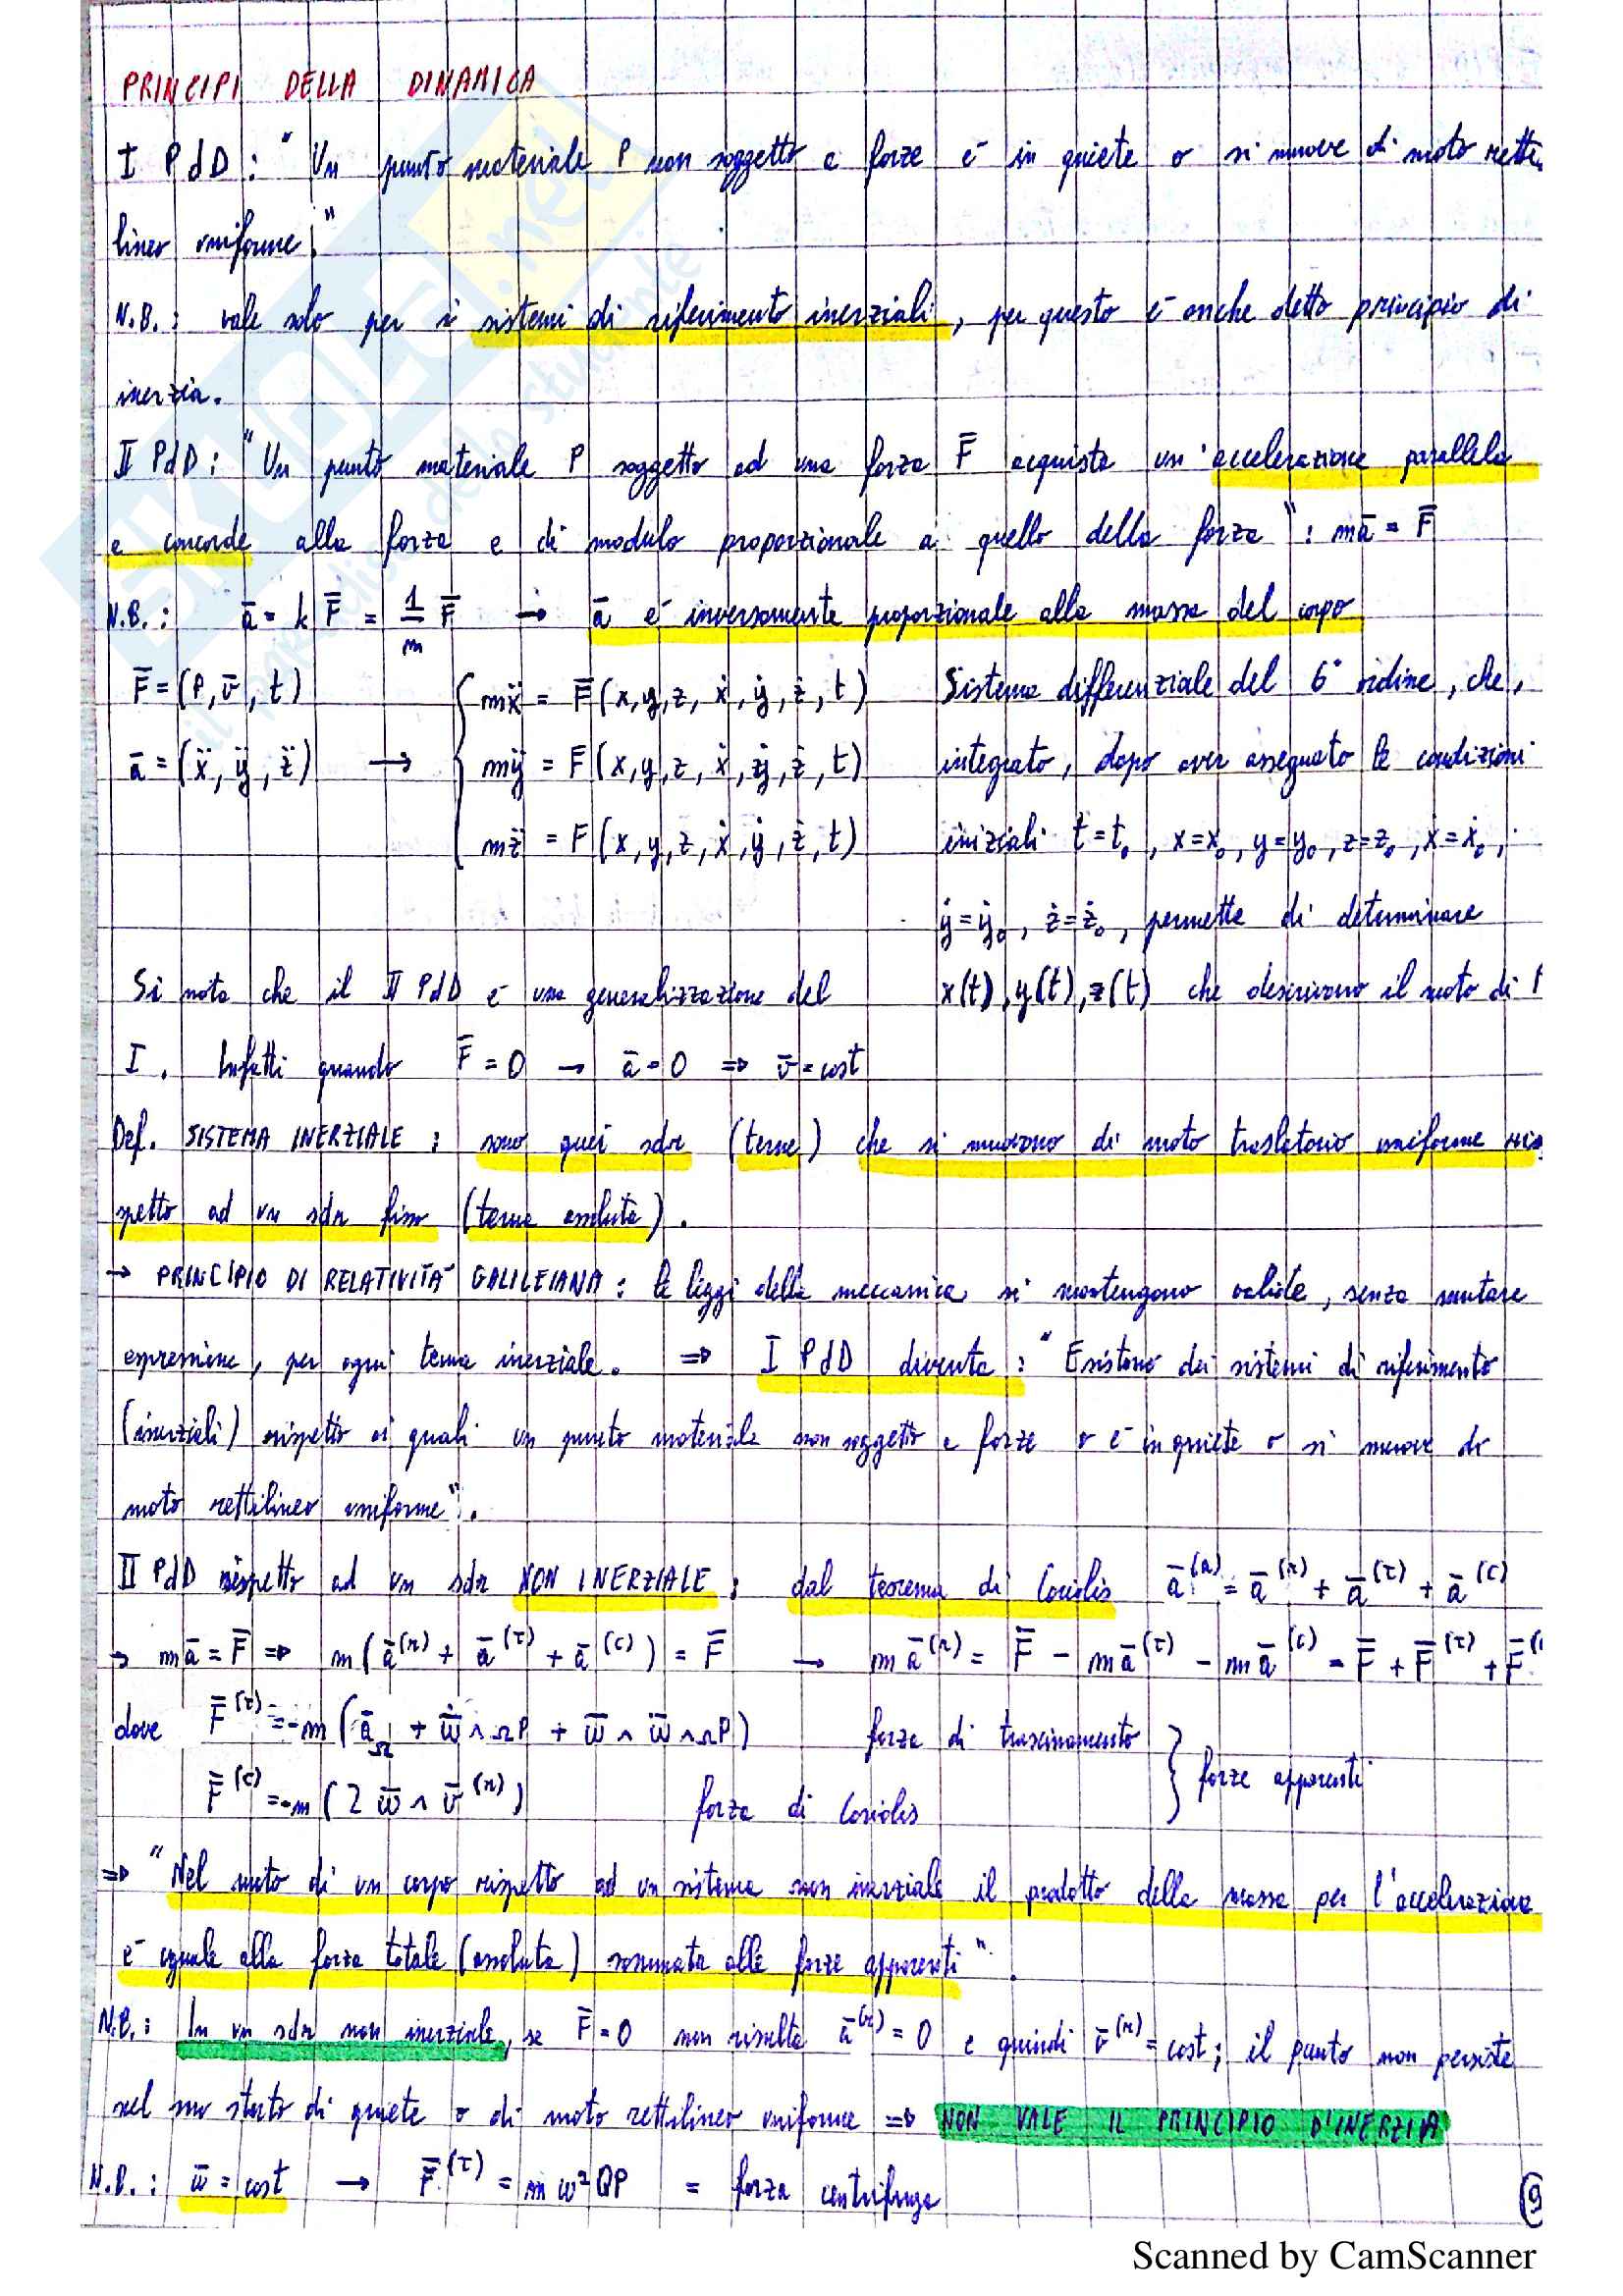 PRINCIPI DELLA DINAMICA
I PdD: "Un punto materiale P non soggetto a forze è in quiete o si muove di moto retti
lineo uniforme."
N.B.: vale solo per i sistemi di riferimento inerziali, per questo è anche detto principio di
inerzia.
II PdD: "Un punto materiale P soggetto ad una forza F̄ acquista un'accelerazione parallela
e concorde alla forza e di modulo proporzionale a quello della forza": mā = F̄
N.B.: ā = k F̄ = 1/m F̄ → ā è inversamente proporzionale alla massa del corpo
F̄ = (P, v̄, t)
ā = (ẍ, ÿ, z̈) →
mẍ = F̄(x, y, z, ẋ, ẏ, ż, t)
mÿ = F(x, y, z, ẋ, ẏ, ż, t)
mz̈ = F(x, y, z, ẋ, ẏ, ż, t)
Sistema differenziale del 6° ordine, che,
integrato, dopo aver assegnato le condizioni
iniziali t=t₀, x=x₀, y=y₀, z=z₀, ẋ=ẋ₀,
ẏ=ẏ₀, ż=ż₀, permette di determinare
x(t), y(t), z(t) che descrivono il moto di P
Si nota che il II PdD è una generalizzazione del
I. Infatti quando F̄ = 0 → ā = 0 ⇒ v̄ = cost
Def. SISTEMA INERZIALE: sono quei sdr (terne) che si muovono di moto traslatorio uniforme ris
petto ad un sdr fisso (terna assoluta).
→ PRINCIPIO DI RELATIVITÀ GALILEIANA: le leggi della meccanica si mantengono valide, senza mutare
espressione, per ogni terna inerziale. ⇒ I PdD diventa: "Esistono dei sistemi di riferimento
(inerziali) rispetto ai quali un punto materiale non soggetto a forze o è in quiete o si muove di
moto rettilineo uniforme".
II PdD rispetto ad un sdr NON INERZIALE: dal teorema di Coriolis ā⁽ᵃ⁾ = ā⁽ʳ⁾ + ā⁽ᵗ⁾ + ā⁽ᶜ⁾
→ mā = F̄ ⇒ m(ā⁽ʳ⁾ + ā⁽ᵗ⁾ + ā⁽ᶜ⁾) = F̄ → mā⁽ʳ⁾ = F̄ - mā⁽ᵗ⁾ - mā⁽ᶜ⁾ = F̄ + F̄⁽ᵗ⁾ + F̄⁽
dove F̄⁽ᵗ⁾ = -m(ā_Ω + ω̄̇ ∧ ΩP + ω̄ ∧ ω̄ ∧ ΩP) forza di trascinamento
F̄⁽ᶜ⁾ = -m(2 ω̄ ∧ v̄⁽ʳ⁾) forza di Coriolis
} forze apparenti
⇒ "Nel moto di un corpo rispetto ad un sistema non inerziale il prodotto della massa per l'accelerazione
è uguale alla forza totale (assoluta) sommata alle forze apparenti".
N.B.: In un sdr non inerziale, se F̄ = 0 non risulta ā⁽ʳ⁾ = 0 e quindi v̄⁽ʳ⁾ = cost; il punto non persiste
nel suo stato di quiete o di moto rettilineo uniforme ⇒ NON VALE IL PRINCIPIO D'INERZIA
N.B.: ω̄ = cost → F̄⁽ᵗ⁾ = m ω² QP = forza centrifuga
9
Scanned by CamScanner
SKUOLA.net
il paradiso dello studente